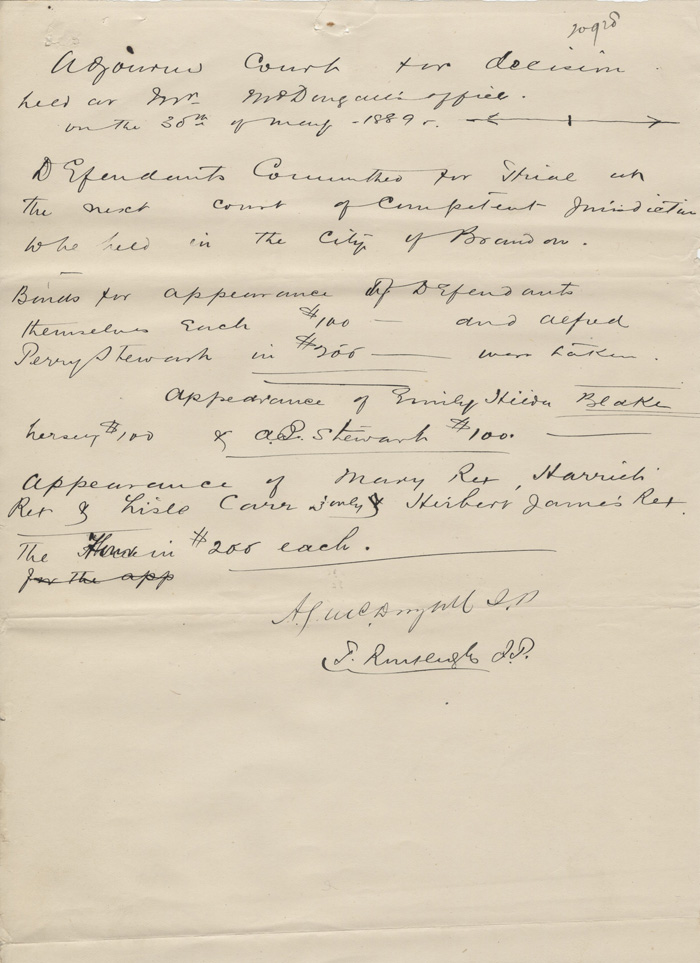 Adjourned Court for decision
held at Mr. McDougall's office.
on the 30th of May - 1889.
DEfendants Committed for Trial at
the next court of Competent Jurisdiction
to be held in the City of Brandon.
Bonds for appearance of DEfendants
themselves Each $100 — and Alfred
Perry Stewart in $200 — were taken.
Appearance of Emily Hilda Blake
herself $100 & A.P. Stewart $100.
Appearance of Mary Rex, Harriet
Rex & Lisle Carr & Herbert James Rex.
The in $200 each.
for the app
J.P.
J.P.